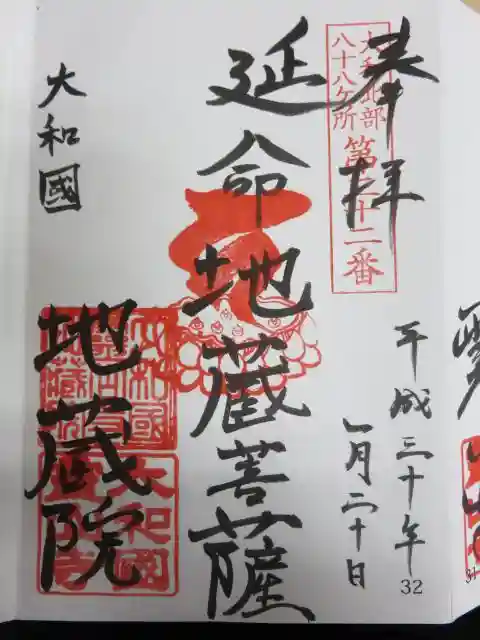 奉拝
大和北部
八十八ヶ所
第三十二番
平成三十年
一月二十日
延命地蔵菩薩
大和國
地蔵院
32